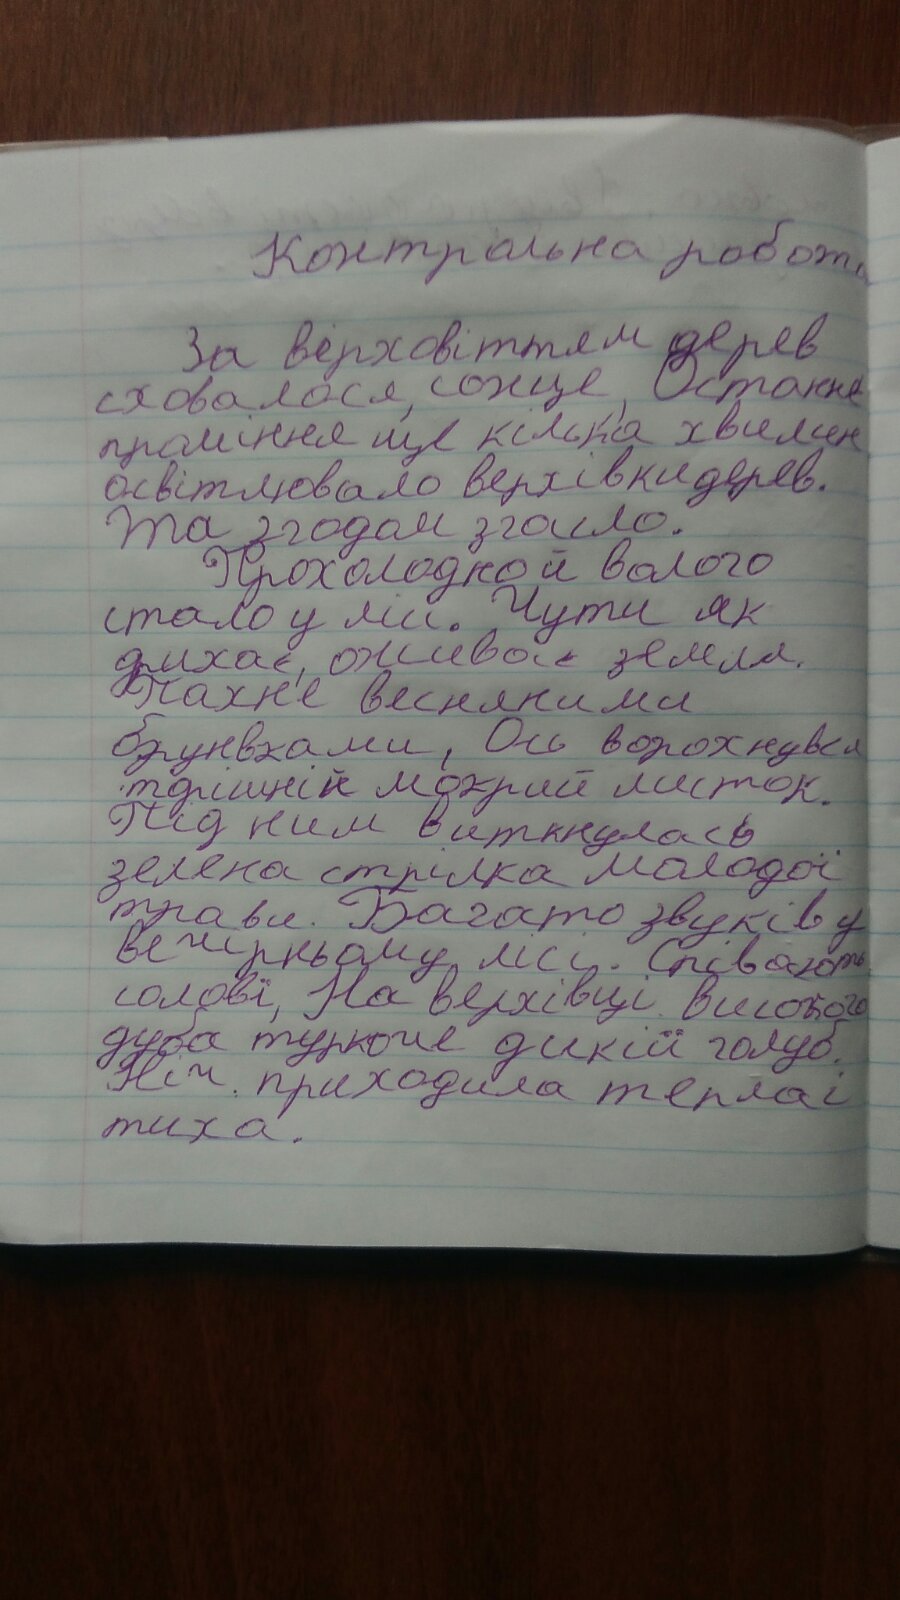 Контрольна робота
За верховіттям дерев
сховалося, сонце, Останнє
проміння ще кілька хвилин
освітлювало верхівки дерев.
Та згодом згасло.
Прохолодно й волого
стало у лісі. Чути як
дихає, оживає земля.
Пахне весняними
брунвками, Ось ворохнувся
торішній мокрий листок.
Під ним виткнулась
зелена стрілка молодої
трави. Багато звуків у
вечірньому лісі. Співають
солові, На верхівці високого
дуба туркоче дикій голуб.
Ніч приходила тепла і
тиха.